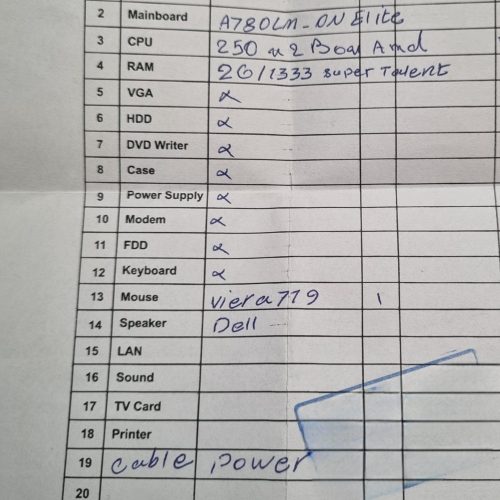 2 Mainboard A780LM-ON Elite
3 CPU 250 x2 Box Amd
4 RAM 2G/1333 super Talent
5 VGA α
6 HDD α
7 DVD Writer α
8 Case α
9 Power Supply α
10 Modem α
11 FDD α
12 Keyboard α
13 Mouse viera 719 1
14 Speaker Dell
15 LAN
16 Sound
17 TV Card
18 Printer
19 cable power
20